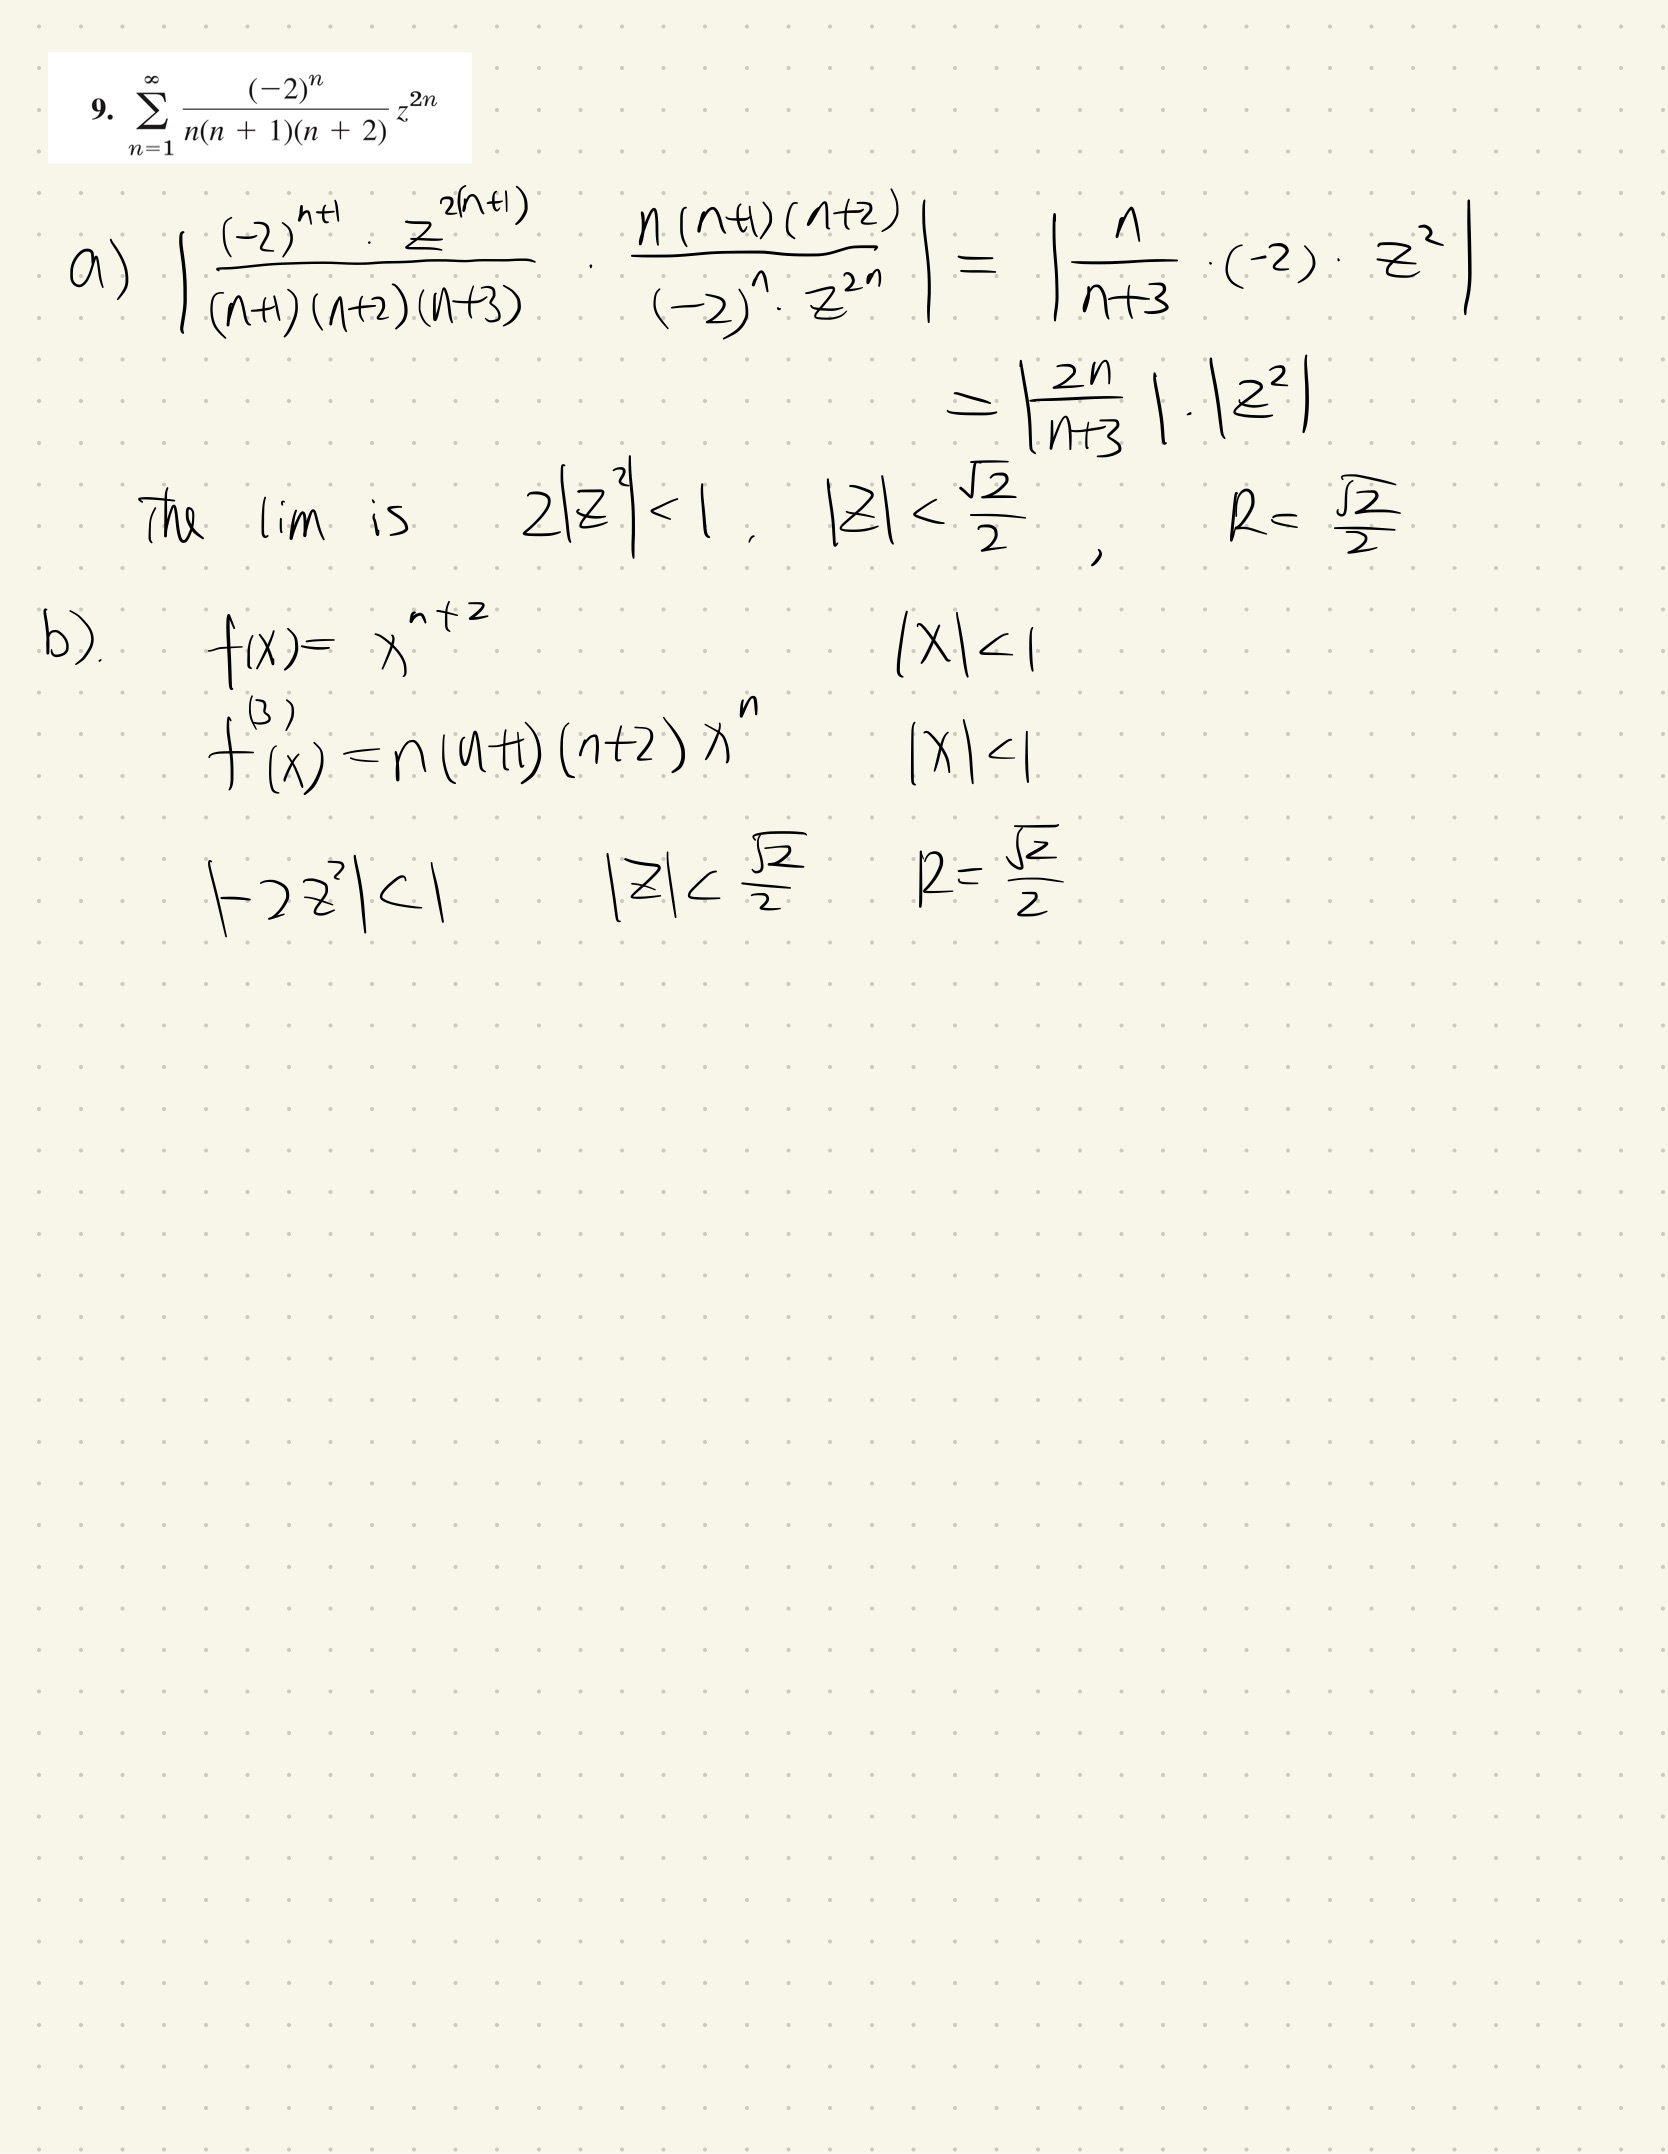 9. \sum_{n=1}^{\infty} \frac{(-2)^n}{n(n + 1)(n + 2)} z^{2n}
a) \left| \frac{(-2)^{n+1} \cdot z^{2(n+1)}}{(n+1)(n+2)(n+3)} \cdot \frac{n(n+1)(n+2)}{(-2)^n \cdot z^{2n}} \right| = \left| \frac{n}{n+3} \cdot (-2) \cdot z^2 \right|
= \left| \frac{2n}{n+3} \right| \cdot |z^2|
The lim is 2|z^2| < 1, |z| < \frac{\sqrt{2}}{2}, R = \frac{\sqrt{2}}{2}
b). f(x) = x^{n+2} |x| < 1
f^{(3)}(x) = n(n+1)(n+2) x^n |x| < 1
|-2z^2| < 1 |z| < \frac{\sqrt{2}}{2} R = \frac{\sqrt{2}}{2}